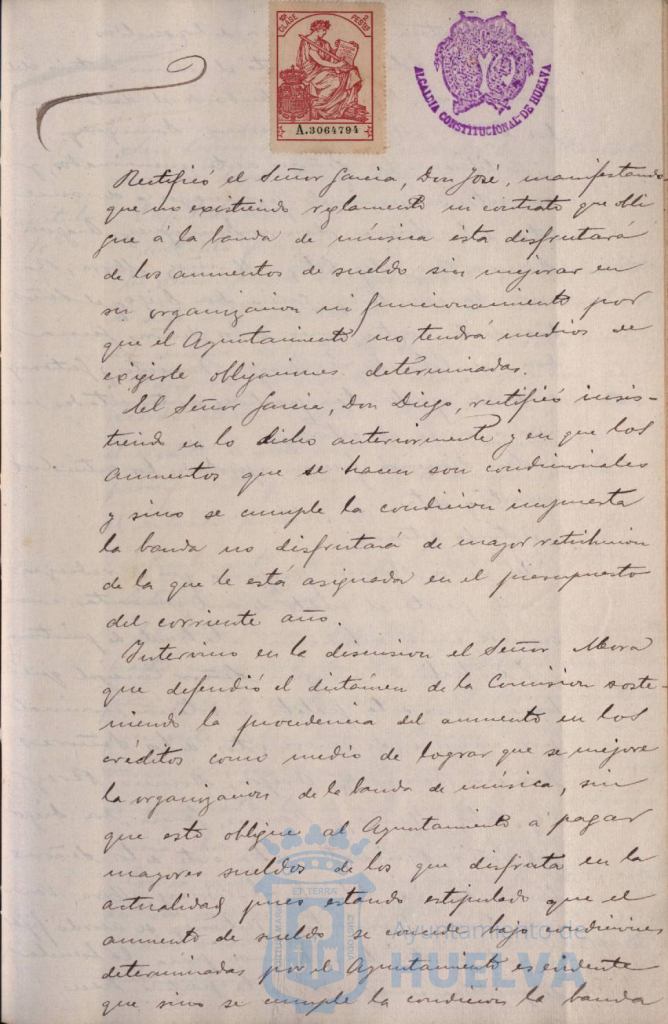 CLASE PESETAS
A.3064794
ALCALDIA CONSTITUCIONAL DE HUELVA
Rectificó el Señor Garcia, Don José, manifestando
que no existiendo reglamento ni contrato que obli
gue á la banda de música ésta disfrutará
de los aumentos de sueldo sin mejorar en
su organizacion ni funcionamiento por
que el Ayuntamiento no tendrá medios de
exigirle obligaciones determinadas.
El Señor Garcia, Don Diego, rectificó insis-
tiendo en lo dicho anteriormente y en que los
aumentos que se hacen son condicionales
y sino se cumple la condicion impuesta
la banda no disfrutará de mayor retribucion
de la que le está asignada en el presupuesto
del corriente año.
Intervino en la discusion el Señor Mora
que defendió el dictámen de la Comision soste-
niendo la procedencia del aumento en los
créditos como medio de lograr que se mejore
la organizacion de la banda de música, sin
que esto obligue al Ayuntamiento á pagar
mayores sueldos de los que disfruta en la
actualidad pues estando estipulado que el
aumento de sueldo se concede bajo condiciones
determinadas por el Ayuntamiento es evidente
que sino se cumple la condicion la banda
Ayuntamiento de
HUELVA